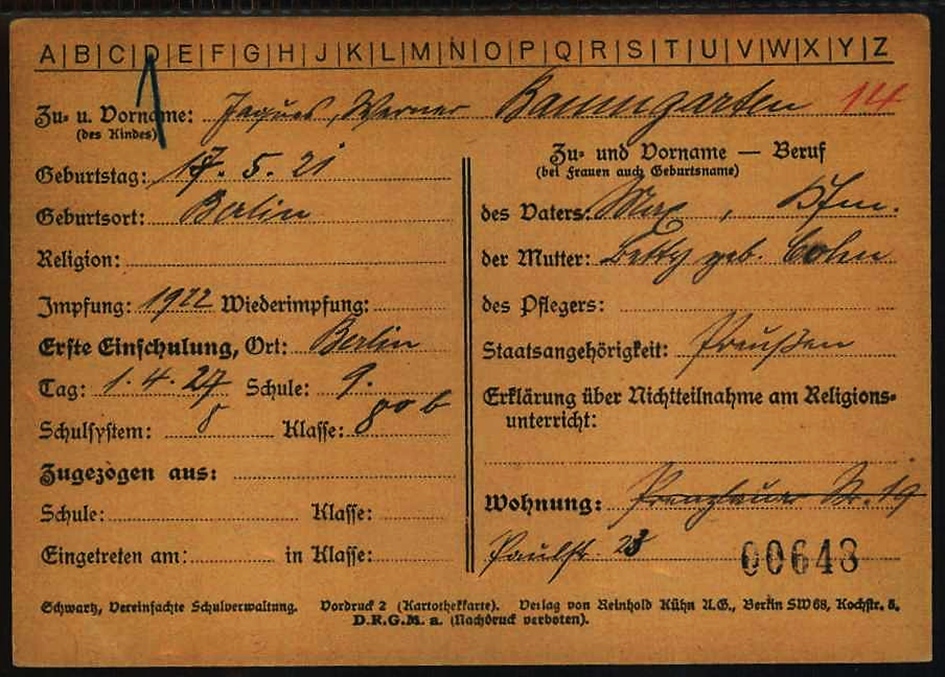 A|B|C|D|E|F|G|H|J|K|L|M|N|O|P|Q|R|S|T|U|V|W|X|Y|Z
Zu- u. Vorname: Jaques, Werner Baumgarten 14
(des Kindes)
Geburtstag: 17. 5. 21
Geburtsort: Berlin
Religion:
Impfung: 1922 Wiederimpfung:
Erste Einschulung, Ort: Berlin
Tag: 1. 4. 27 Schule: 9.
Schulsystem: 8 Klasse: 8o b
Zugezogen aus:
Schule: Klasse:
Eingetreten am: in Klasse:
Zu- und Vorname — Beruf
(bei Frauen auch Geburtsname)
des Vaters: Max, Kfm.
der Mutter: Betty geb. Cohn
des Pflegers:
Staatsangehörigkeit: Preußen
Erklärung über Nichtteilnahme am Religions-
unterricht:
Wohnung: Prenzlauer Str. 19
Paulstr. 23 00643
Schwartz, Vereinfachte Schulverwaltung. Vordruck 2 (Kartothekkarte). Verlag von Reinhold Kühn A.G., Berlin SW 68, Kochstr. 5.
D.R.G.M. a. (Nachdruck verboten).